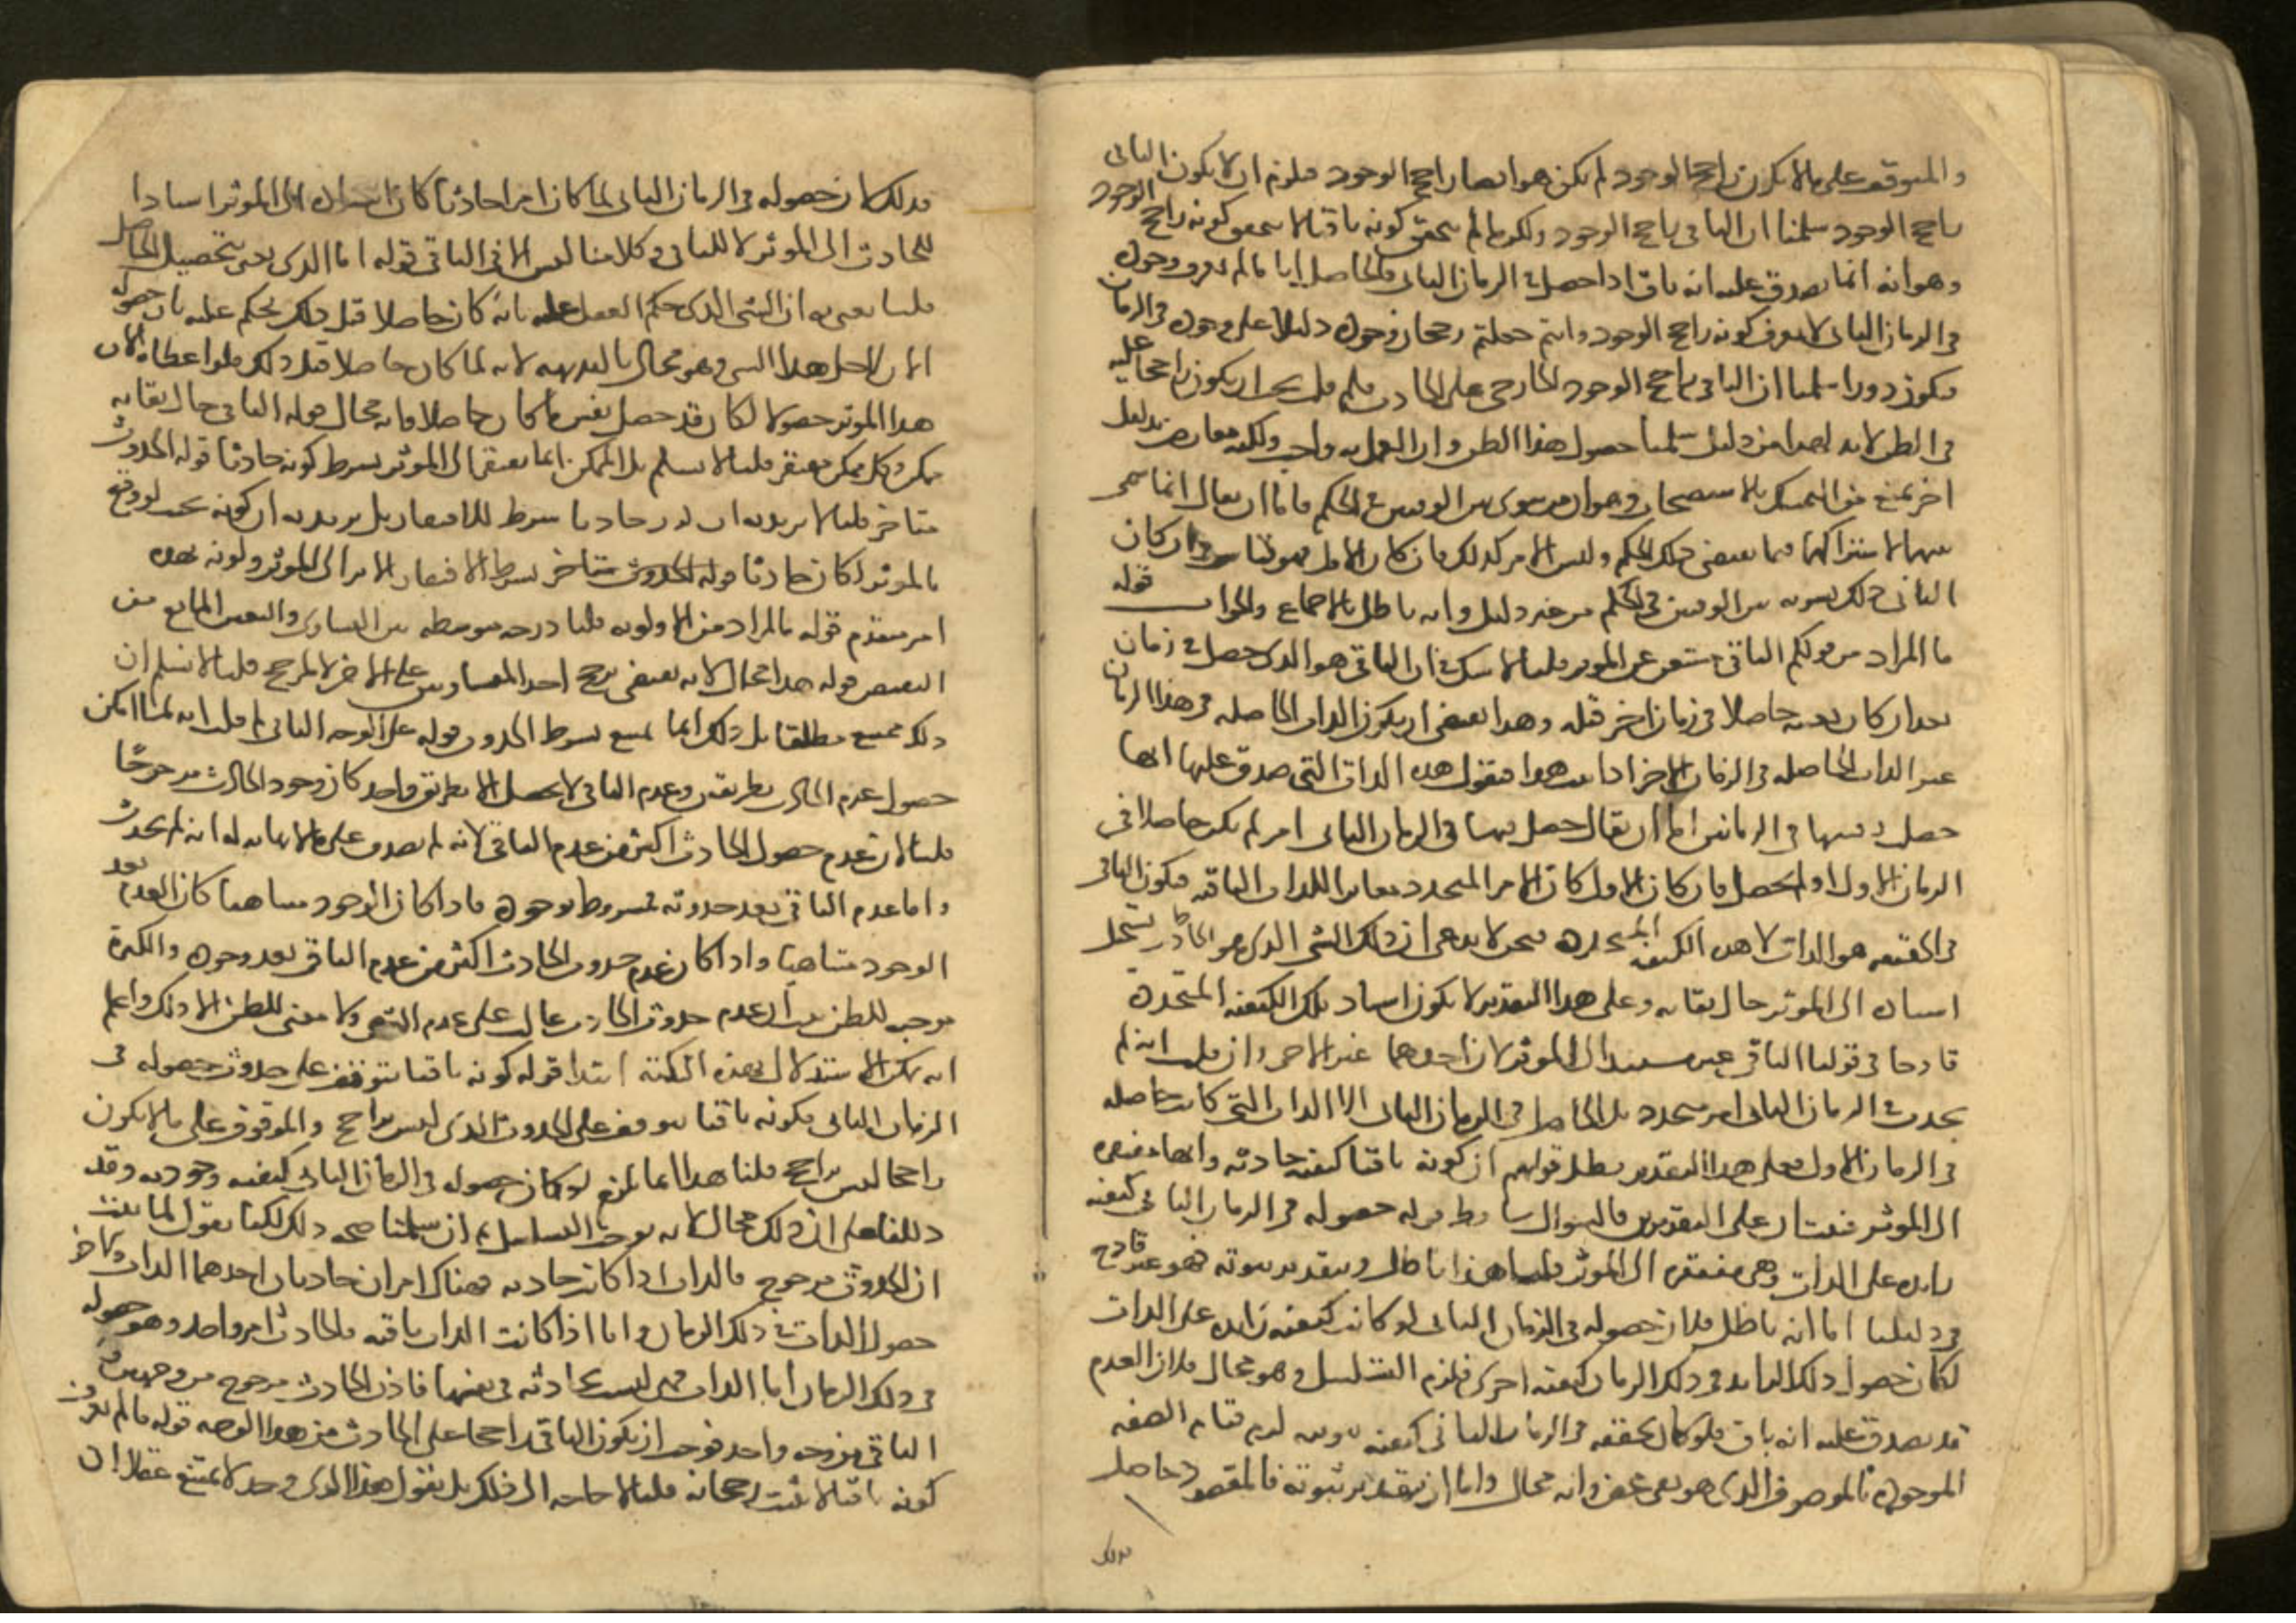 والمتوقف على ما لا يكون راجح الوجود لم يكن هو ايضا راجح الوجود فلزم ان لا يكون الباقي
راجح الوجود سلمنا ان الباقي راجح الوجود ولكن ما لم يتحقق كونه باقيا لا يتحقق كونه راجح الوجود
وهو انه انما يصدق عليه انه باق اذا حصل في الزمان الثاني فالحاصل انا ما لم نعرف وجوده
في الزمان الثاني لا نعرف كونه راجح الوجود وانتم جعلتم رجحان وجوده دليلا على وجوده في الزمان
فيكون دورا سلمنا ان الباقي راجح الوجود الخارجي على الحادث فلم قلت يجب ان يكون راجحا عليه
في الظن لا بد لهذا من دليل سلمنا حصول هذا الظن وان العمل به واجب ولكنه معارض بدليل
اخر يمنع من التمسك بالاستصحاب وهو ان من سوى بين الوقتين في الحكم فاما ان يقال انما سوى
بينهما لاشتراكهما فيما يقتضي ذلك الحكم وليس الامر كذلك فان كان الاول فهو قياس وان كان
الثاني كان ذلك تسوية بين الوقتين في الحكم من غير دليل وانه باطل بالاجماع والجواب قوله
ما المراد من قولكم الباقي مستغن عن المؤثر قلنا لا شك في ان الباقي هو الذي حصل في زمان
بعد ان كان بعينه حاصلا في زمان اخر قبله وهذا يقتضي ان يكون الذات الحاصلة في هذا الزمان
عين الذات الحاصلة في الزمان الاخر اذا ثبت هذا فنقول هذه الذات التي صدق عليها انها
حصلت بعينها في الزمانين اما ان يقال حصل فيها في الزمان الثاني امر لم يكن حاصلا في
الزمان الاول او لم يحصل فان كان الاول كان الامر المتجدد مغايرا للذات الباقية فيكون الباقي
في الحقيقة هو الذات لا هذه الكيفية المتجددة فنحن لا ندعي ان ذلك الشي الذي هو الحادث يستحيل
اسناده الى المؤثر حال بقائه وعلى هذا التقدير لا يكون اسناد تلك الكيفية المتجددة
قادحا في قولنا الباقي غير مستند الى المؤثر لان احدهما غير الاخر وان قلت انه لم
يحدث في الزمان الثاني امر متجدد بل الحاصل في الزمان الثاني الا الذات التي كانت حاصلة
في الزمان الاول فعلى هذا التقدير بطل قولهم ان كونه باقيا كيفية حادثة وانها مفتقرة
الى المؤثر فثبت ان على التقديرين فالسؤال ساقط قوله حصوله في الزمان الثاني كيفية
زايدة على الذات وهي مفتقرة الى المؤثر قلنا هذا باطل وبتقدير ثبوته فهو غير قادح
في دليلنا اما انه باطل فلان حصوله في الزمان الثاني لو كانت كيفية زايدة على الذات
لكان حصول ذلك الزايد في ذلك الزمان كيفية اخرى فلزم التسلسل وهو محال فلان العدم
قد يصدق عليه انه باق فلو كان تحققه في الزمان الثاني كيفية ثبوتية لزم قيام الصفة
الموجودة بالموصوف الذي هو نفي محض وانه محال واما ان بتقدير ثبوته فالمقصود حاصل
فذلك
فذلك لان حصوله في الزمان الثاني لما كان امرا حادثا كان اسناده الى المؤثر اسنادا
للحادث الى المؤثر لا للباقي وكلامنا ليس الا في الباقي قوله اما الذي يعنى بتحصيل الحاصل
قلنا نعني به ان الشي الذي حكم العقل عليه بانه كان حاصلا قبل ذلك يحكم عليه بان حصوله
الان لاجل هذا الشي وهو محال بالبديهة لانه لما كان حاصلا قبل ذلك فلو اعطاه الان
هذا المؤثر حصولا لكان قد حصل نفس ما كان حاصلا وانه محال قوله الباقي حال بقائه
ممكن وكل ممكن مفتقر قلنا لا نسلم بل الممكن انما يفتقر الى المؤثر بشرط كونه حادثا قوله الحدوث
متاخر قلنا لا نريد به ان كونه حادثا شرط للافتقار بل نريد به ان كونه بحيث لو وقع
بالمؤثر لكان حادثا قوله الحدوث متاخر بشرط الافتقار الامر الى المؤثر وكونه بهذه
امر متقدم قوله ما المراد من الاولوية قلنا درجة متوسطة بين التساوي والتعين المانع من
النقيض قوله هذا محال لانه يقتضي ترجح احد المتساويين على الاخر لا لمرجح قلنا لا نسلم ان
ذلك ممتنع مطلقا بل ذلك انما يمتنع بشرط الحدوث قوله على الوجه الثاني لم قلت انه لما امكن
حصول عدم الحادث بطريقين وعدم الباقي لا يحصل الا بطريق واحد كان وجود الحادث مرجوحا
قلنا لان عدم حصول الحادث اكثر من عدم الباقي لانه لم يصدق على ما لا نهاية له انه لم يحدث
واما عدم الباقي بعد حدوثه فمشروط بوجوده فاذا كان الوجود متناهيا كان العدم بعد
الوجود متناهيا واذا كان عدم حدوث الحادث اكثر من عدم الباقي بعد وجوده والكثرة
موجبة للظن ثبت ان عدم حدوث الحادث غالب على عدم الشي ولا معنى للظن الا ذلك واعلم
انه يمكن الاستدلال بهذه النكتة ابتدا قوله كونه باقيا يتوقف على حدوث حصوله في
الزمان الثاني فكونه باقيا يتوقف على الحدوث الذي ليس براجح والموقوف على ما لا يكون
راجحا ليس براجح قلنا هذا انما يلزم لو كان حصوله في الزمان الثاني كيفية وجودية وقد
دللنا على ان ذلك محال لانه يوجب التسلسل ثم ان سلمنا صحة ذلك لكنا نقول لما ثبت
ان الحدوث مرجوح فالذات اذا كانت حادثة فهناك امران حادثان احدهما الذات والاخر
حصول الذات في ذلك الزمان واما اذا كانت الذات باقية فالحادث امر واحد وهو حصوله
في ذلك الزمان اما الذات فهي ليست حادثة في نفسها فاذن الحادث مرجوح من وجهين و
الباقي من وجه واحد فوجب ان يكون الباقي راجحا على الحادث من هذا الوجه قوله ما لم يعرف
كونه باقيا لا يثبت رجحانه قلنا لا حاجة الى ذلك بل نقول هذا الذي وجد لا يمتنع عقلا ان